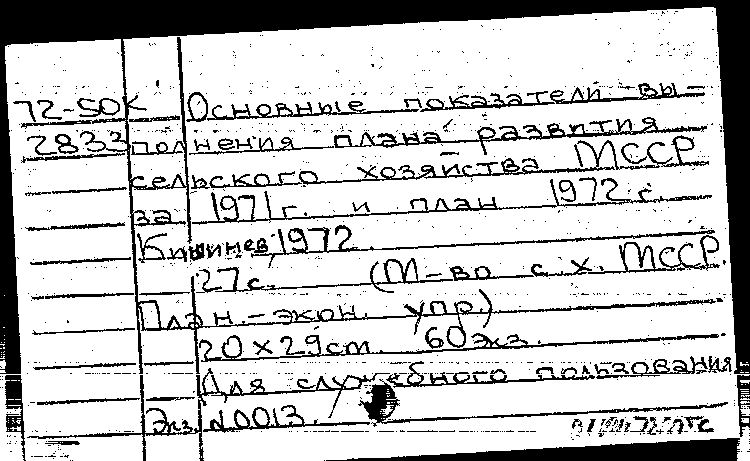 72-SOK Основные показатели вы-
2833 полнения плана развития
сельского хозяйства МССР
за 1971 г. и план 1972 г.
Кишинев, 1972.
27с. (М-во с х. МССР.
План.-экон. упр.)
20×29cm. 60 экз.
Для служебного пользования
Экз. №0013.